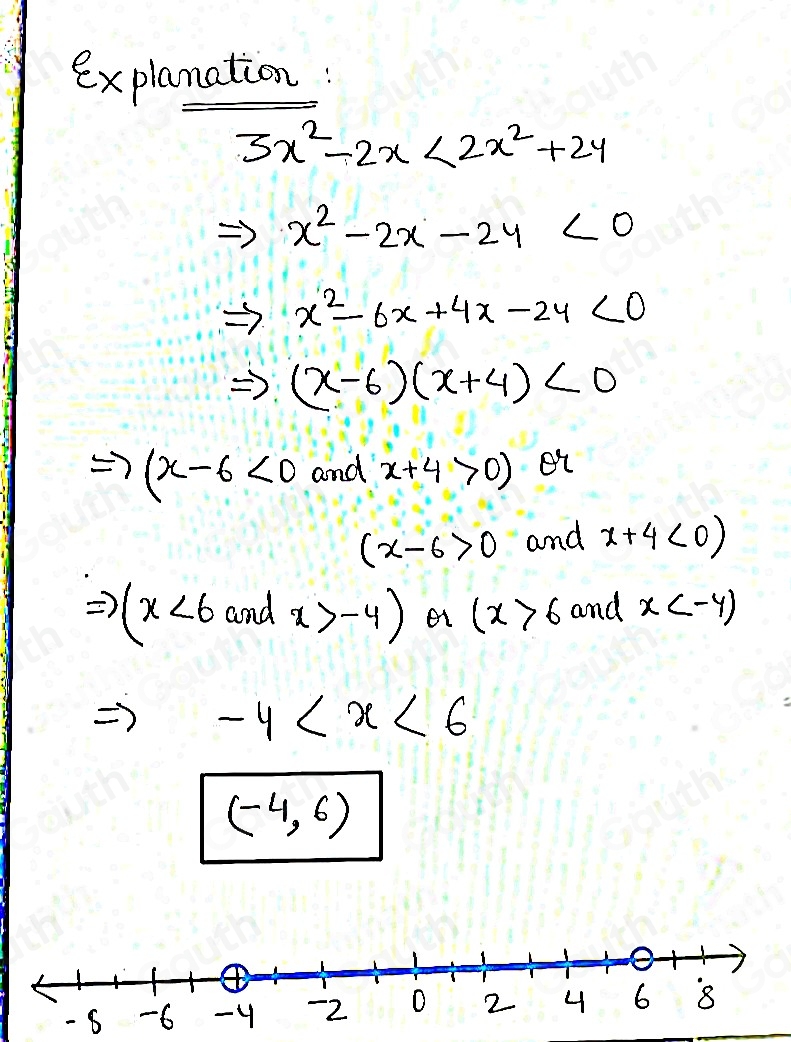 Explanation :
3x² - 2x < 2x² + 24
⇒ x² - 2x - 24 < 0
⇒ x² - 6x + 4x - 24 < 0
⇒ (x-6)(x+4) < 0
⇒ (x-6 < 0 and x+4 > 0) or
(x-6 > 0 and x+4 < 0)
⇒ (x < 6 and x > -4) or (x > 6 and x < -4)
⇒ -4 < x < 6
(-4, 6)
-8 -6 -4 -2 0 2 4 6 8
Gauth